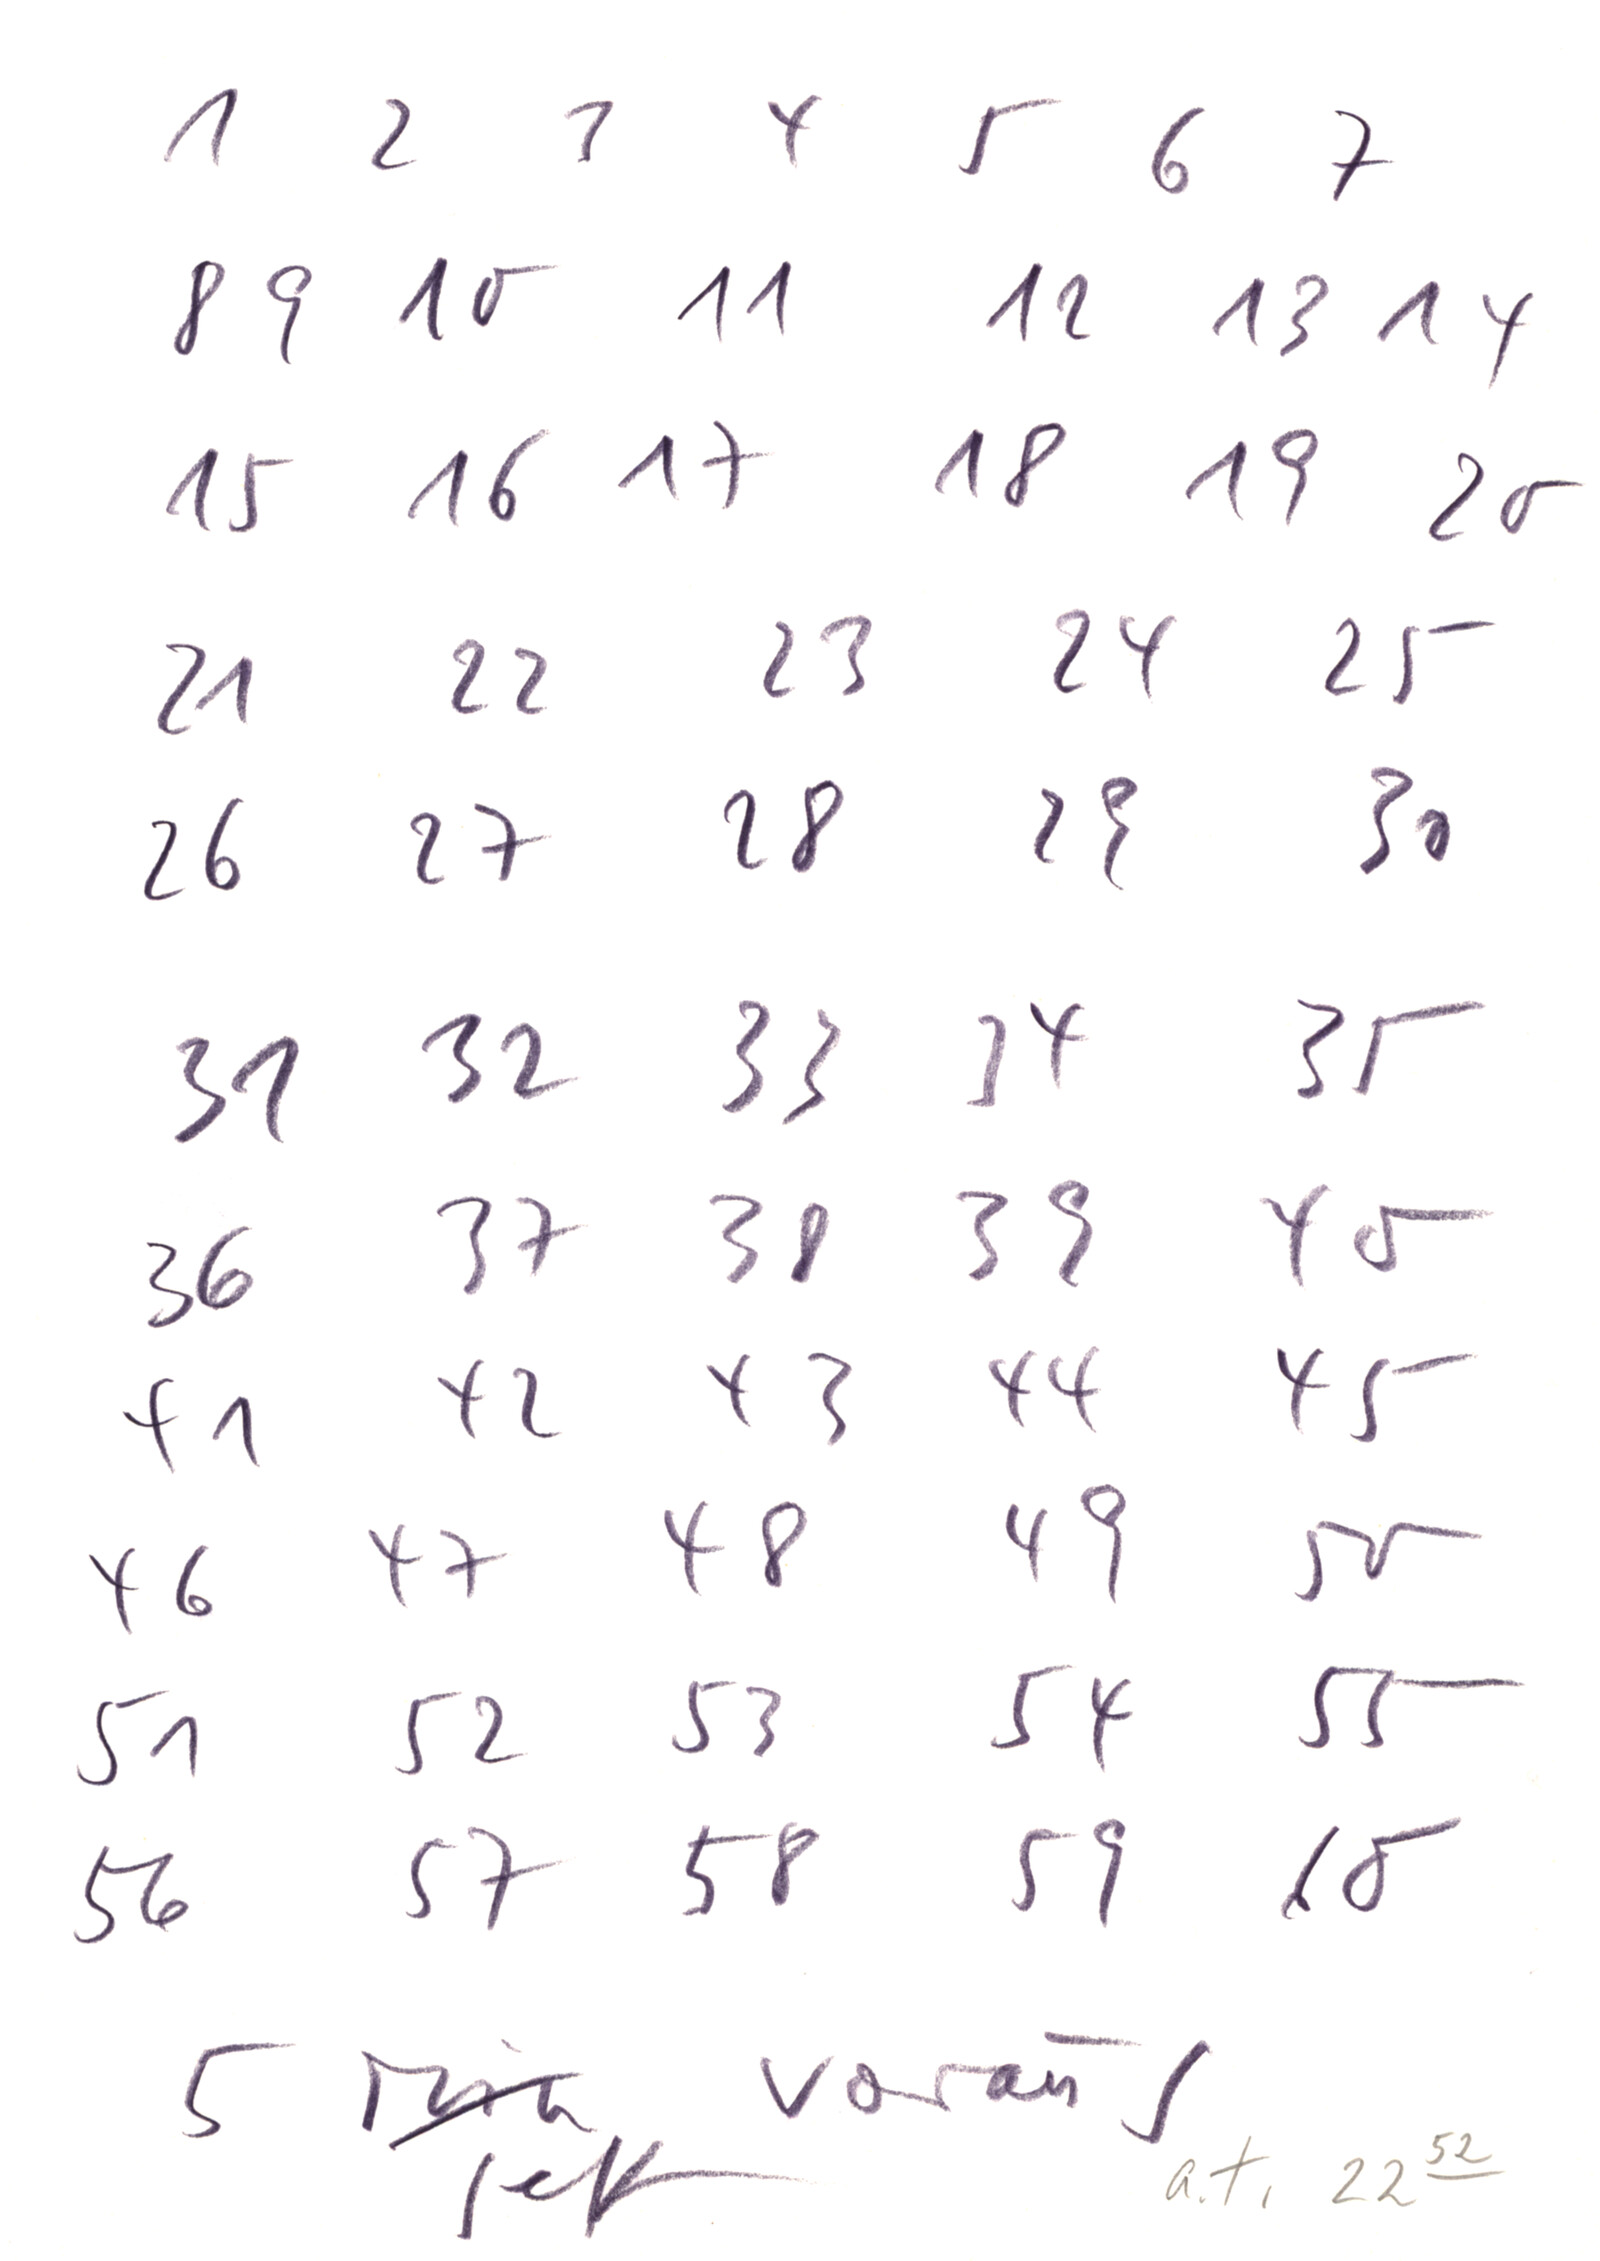 1 2 3 4 5 6 7
8 9 10 11 12 13 14
15 16 17 18 19 20
21 22 23 24 25
26 27 28 29 30
31 32 33 34 35
36 37 38 39 40
41 42 43 44 45
46 47 48 49 50
51 52 53 54 55
56 57 58 59 60
5 Min voraus
a.t. 22 52